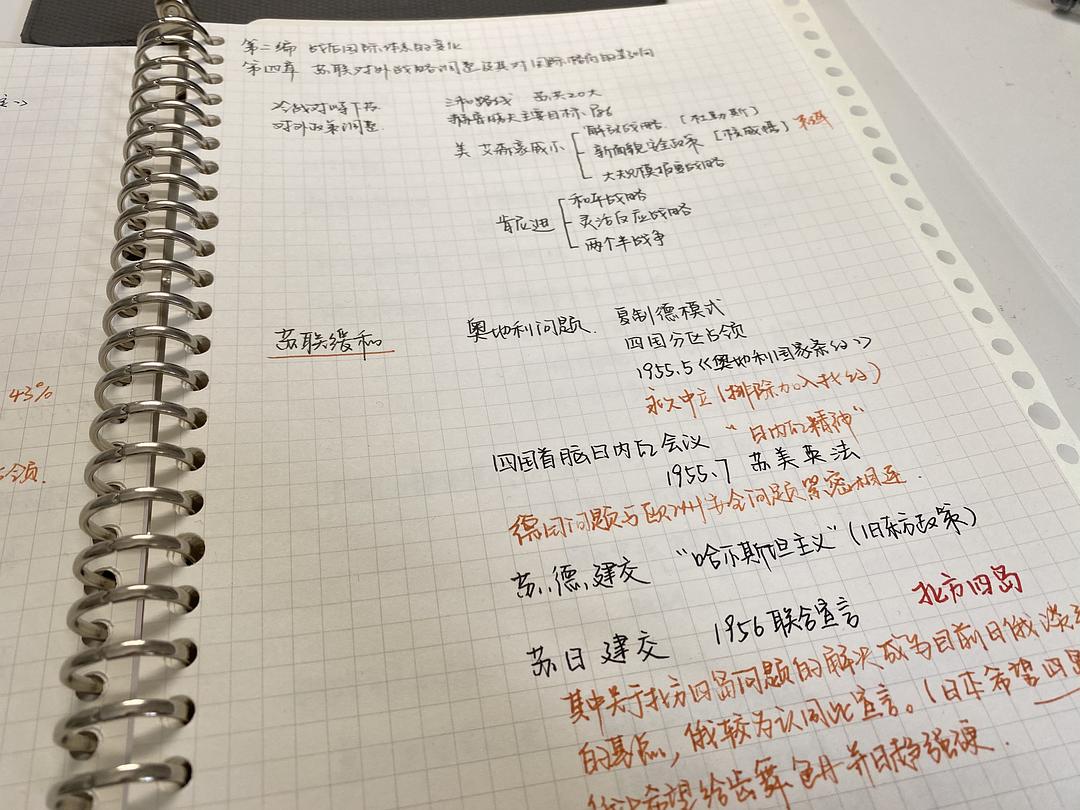 第二编 战后国际体系的变化
第四章 苏联对外战略调整及其对国际格局的影响
冷战对峙下苏
对外政策调整
三和路线 苏共20大
美 艾森豪威尔
解放战略 [杜勒斯]
新面貌安全政策 [核威慑]
大规模报复战略
肯尼迪
和平战略
灵活反应战略
两个半战争
苏联缓和
奥地利问题. 复制德模式
四国分区占领
1955.5《奥地利国家条约》
永久中立(排除加入北约)
四国首脑日内瓦会议 "日内瓦精神"
1955.7 苏美英法
德国问题与欧洲安全问题紧密相连.
苏.德.建交 "哈尔斯坦主义"(旧东方政策)
苏日建交 1956联合宣言 北方四岛
其中关于北方四岛问题的解决成为目前日俄谈
的基点,俄较为认同此宣言。(日本希望四
希望给齿舞色丹并日趋强硬.
43%
占领.